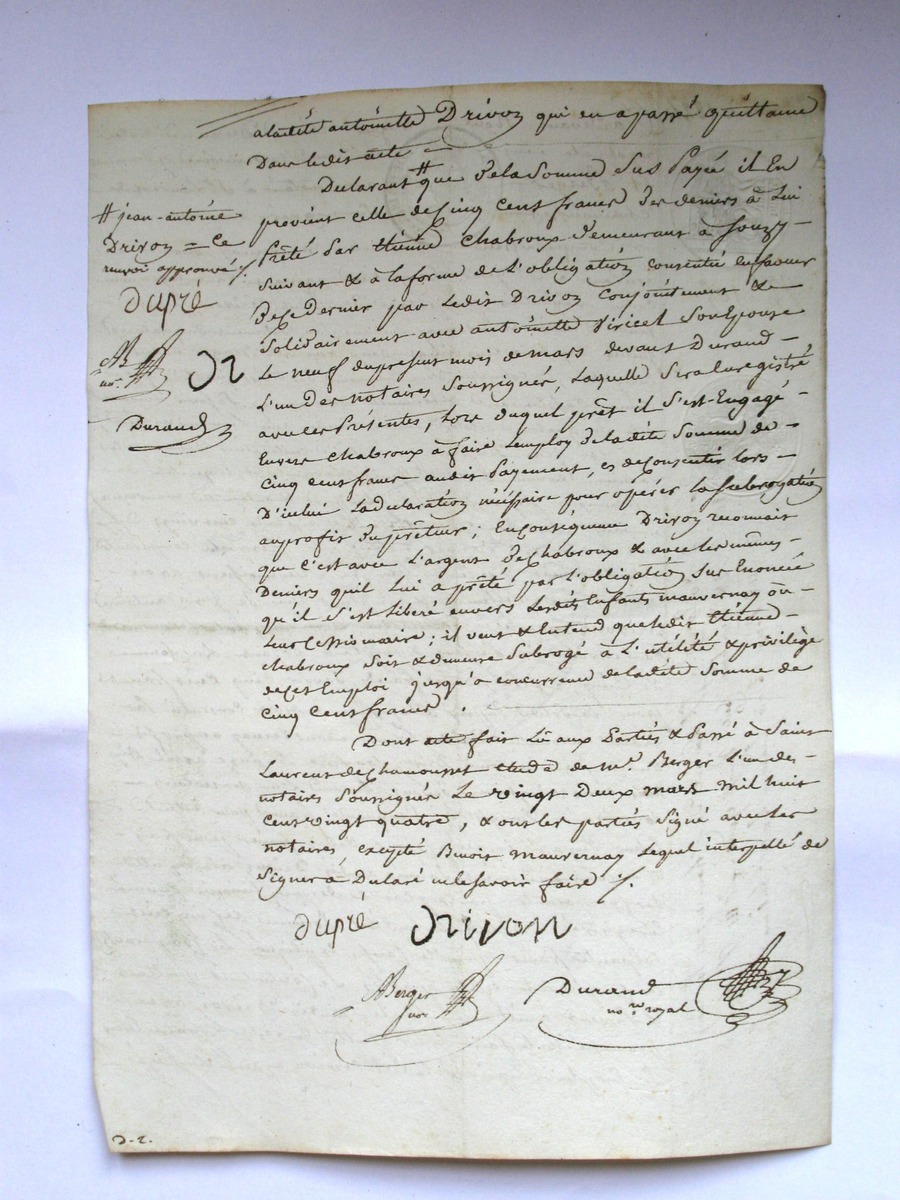 a ladite antoinette Drivon qui en a passé quittance
Dans ledit acte =
Declarant # que de la Somme Sus Payée il En
provient celle de Cinq Cent francs des deniers à Lui
Prêté par Etienne Chabroux demeurant à Souzy
Suivant & à la forme de L'obligation consentie en faveur
De ce Dernier par Ledit Drivon Conjointement &
Solidairement avec antoinette Viricel Son Epouse
Le neuf du present mois de mars devant Durand
L'un des notaires Soussignés, Laquelle Sera Enregistré
avec ces Présentes, Lors duquel prêt il S'est Engagé
Envers Chabroux à faire L'employ de ladite Somme de
Cinq Cent francs audit Payement, et de Consentir lors
D'icelui La declaration nécéssaire pour opérer la Subrogation
au profit du prêteur; En Conséquence Drivon reconnait
que C'est avec L'argent de Chabroux & avec les mêmes
Deniers qu'il Lui a prêté par L'obligation Sus Enoncée
qu'il S'est Libéré envers Lesdits Enfants mauvernay ou
Leur Cessionnaire; il veut & Entend que ledit Etienne
Chabroux Soit & demeure Subrogé à L'utilité & privilège
de cet Emploi jusqu'a concurrence de ladite Somme de
Cinq Cent francs.
Dont acte fait Lû aux Parties & Passé à Saint
Laurent de Chamousset Etude de me. Berger L'un des
notaires Soussignés Le vingt Deux mars mil huit
Cent vingt quatre, & ont les parties Signé avec les
notaires excepté Benoit mauvernay Lequel interpellé de
Signer a Declaré ne le Savoir faire ./.
# jean-antoine
Drivon = Ce
renvoi approuvé ./.
dupré
AB
nre.
Dr
Durand
dupré Drivon
ABerger
nore
Durand
nore. royal
D-r.